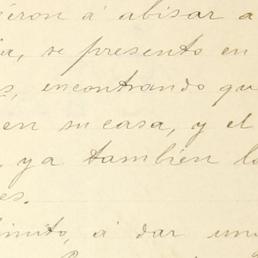 éron á abisar a
se presento en
encontrando qu
en su casa, y el
ya tambien la
es.
á dar un